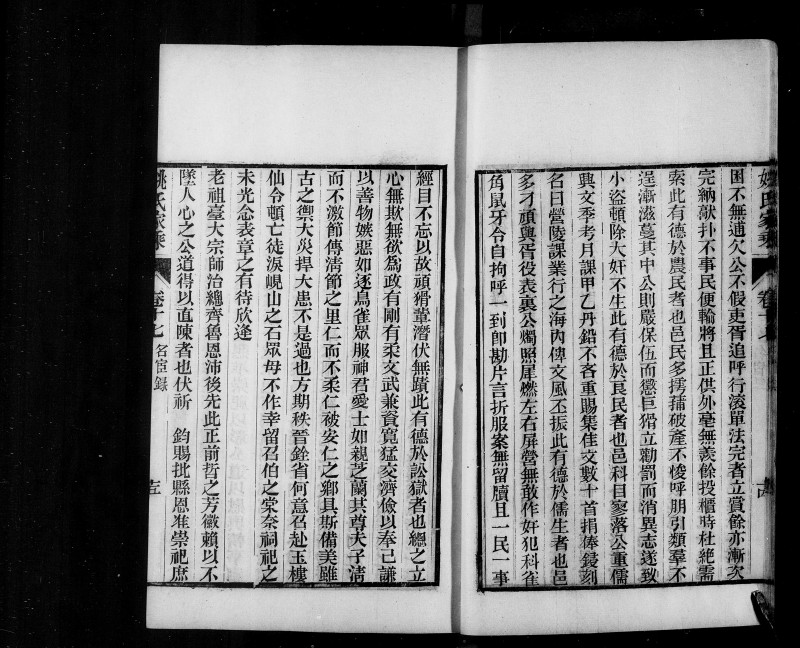 困不無逋欠公不假吏胥追呼行滾單法完者立賞餘亦漸次
完納獻抃不事民便輸將且正供外毫無羨餘投櫃時杜絶需
索此有德於農民者也邑民多摴蒱破產不悛呼朋引類羣不
逞漸滋蔓其中公則嚴保伍而懲巨猾立勸罰而消異志遂致
小盜頓除大奸不生此有德於良民者也邑科目寥落公重儒
興文季考月課甲乙丹鉛不吝重賜集佳文數十首捐俸鋟刻
名曰營陵課業行之海內傳文風丕振此有德於儒生者也邑
多刁頑與胥役表裏公燭照犀燃左右屏營無敢作奸犯科雀
角鼠牙令自拘呼一到卽勘片言折服案無留牘且一民一事
姚氏家乘
卷十七
經目不忘以故頑猾輩潛伏無蹟此有德於訟獄者也緫之立
心無欺無欲為政有剛有柔文武兼資寬猛交濟儉以奉己謙
以善物嫉惡如逐鳥雀眾服神君愛士如親芝蘭共尊夫子清
而不激節傳清節之里仁而不柔仁被安仁之鄉具斯備美雖
古之禦大災捍大患不是過也方期秩晉銓省何意召赴玉樓
仙令頓亡徒淚峴山之石眾母不作幸留召伯之棠奈祠祀之
未光念表章之有待欣逢
老祖臺大宗師治緫齊魯恩沛後先此正前哲之芳徽賴以不
墜人心之公道得以直陳者也伏祈　鈞賜批縣恩准崇祀庶
姚氏家乘
卷十七 名宦錄